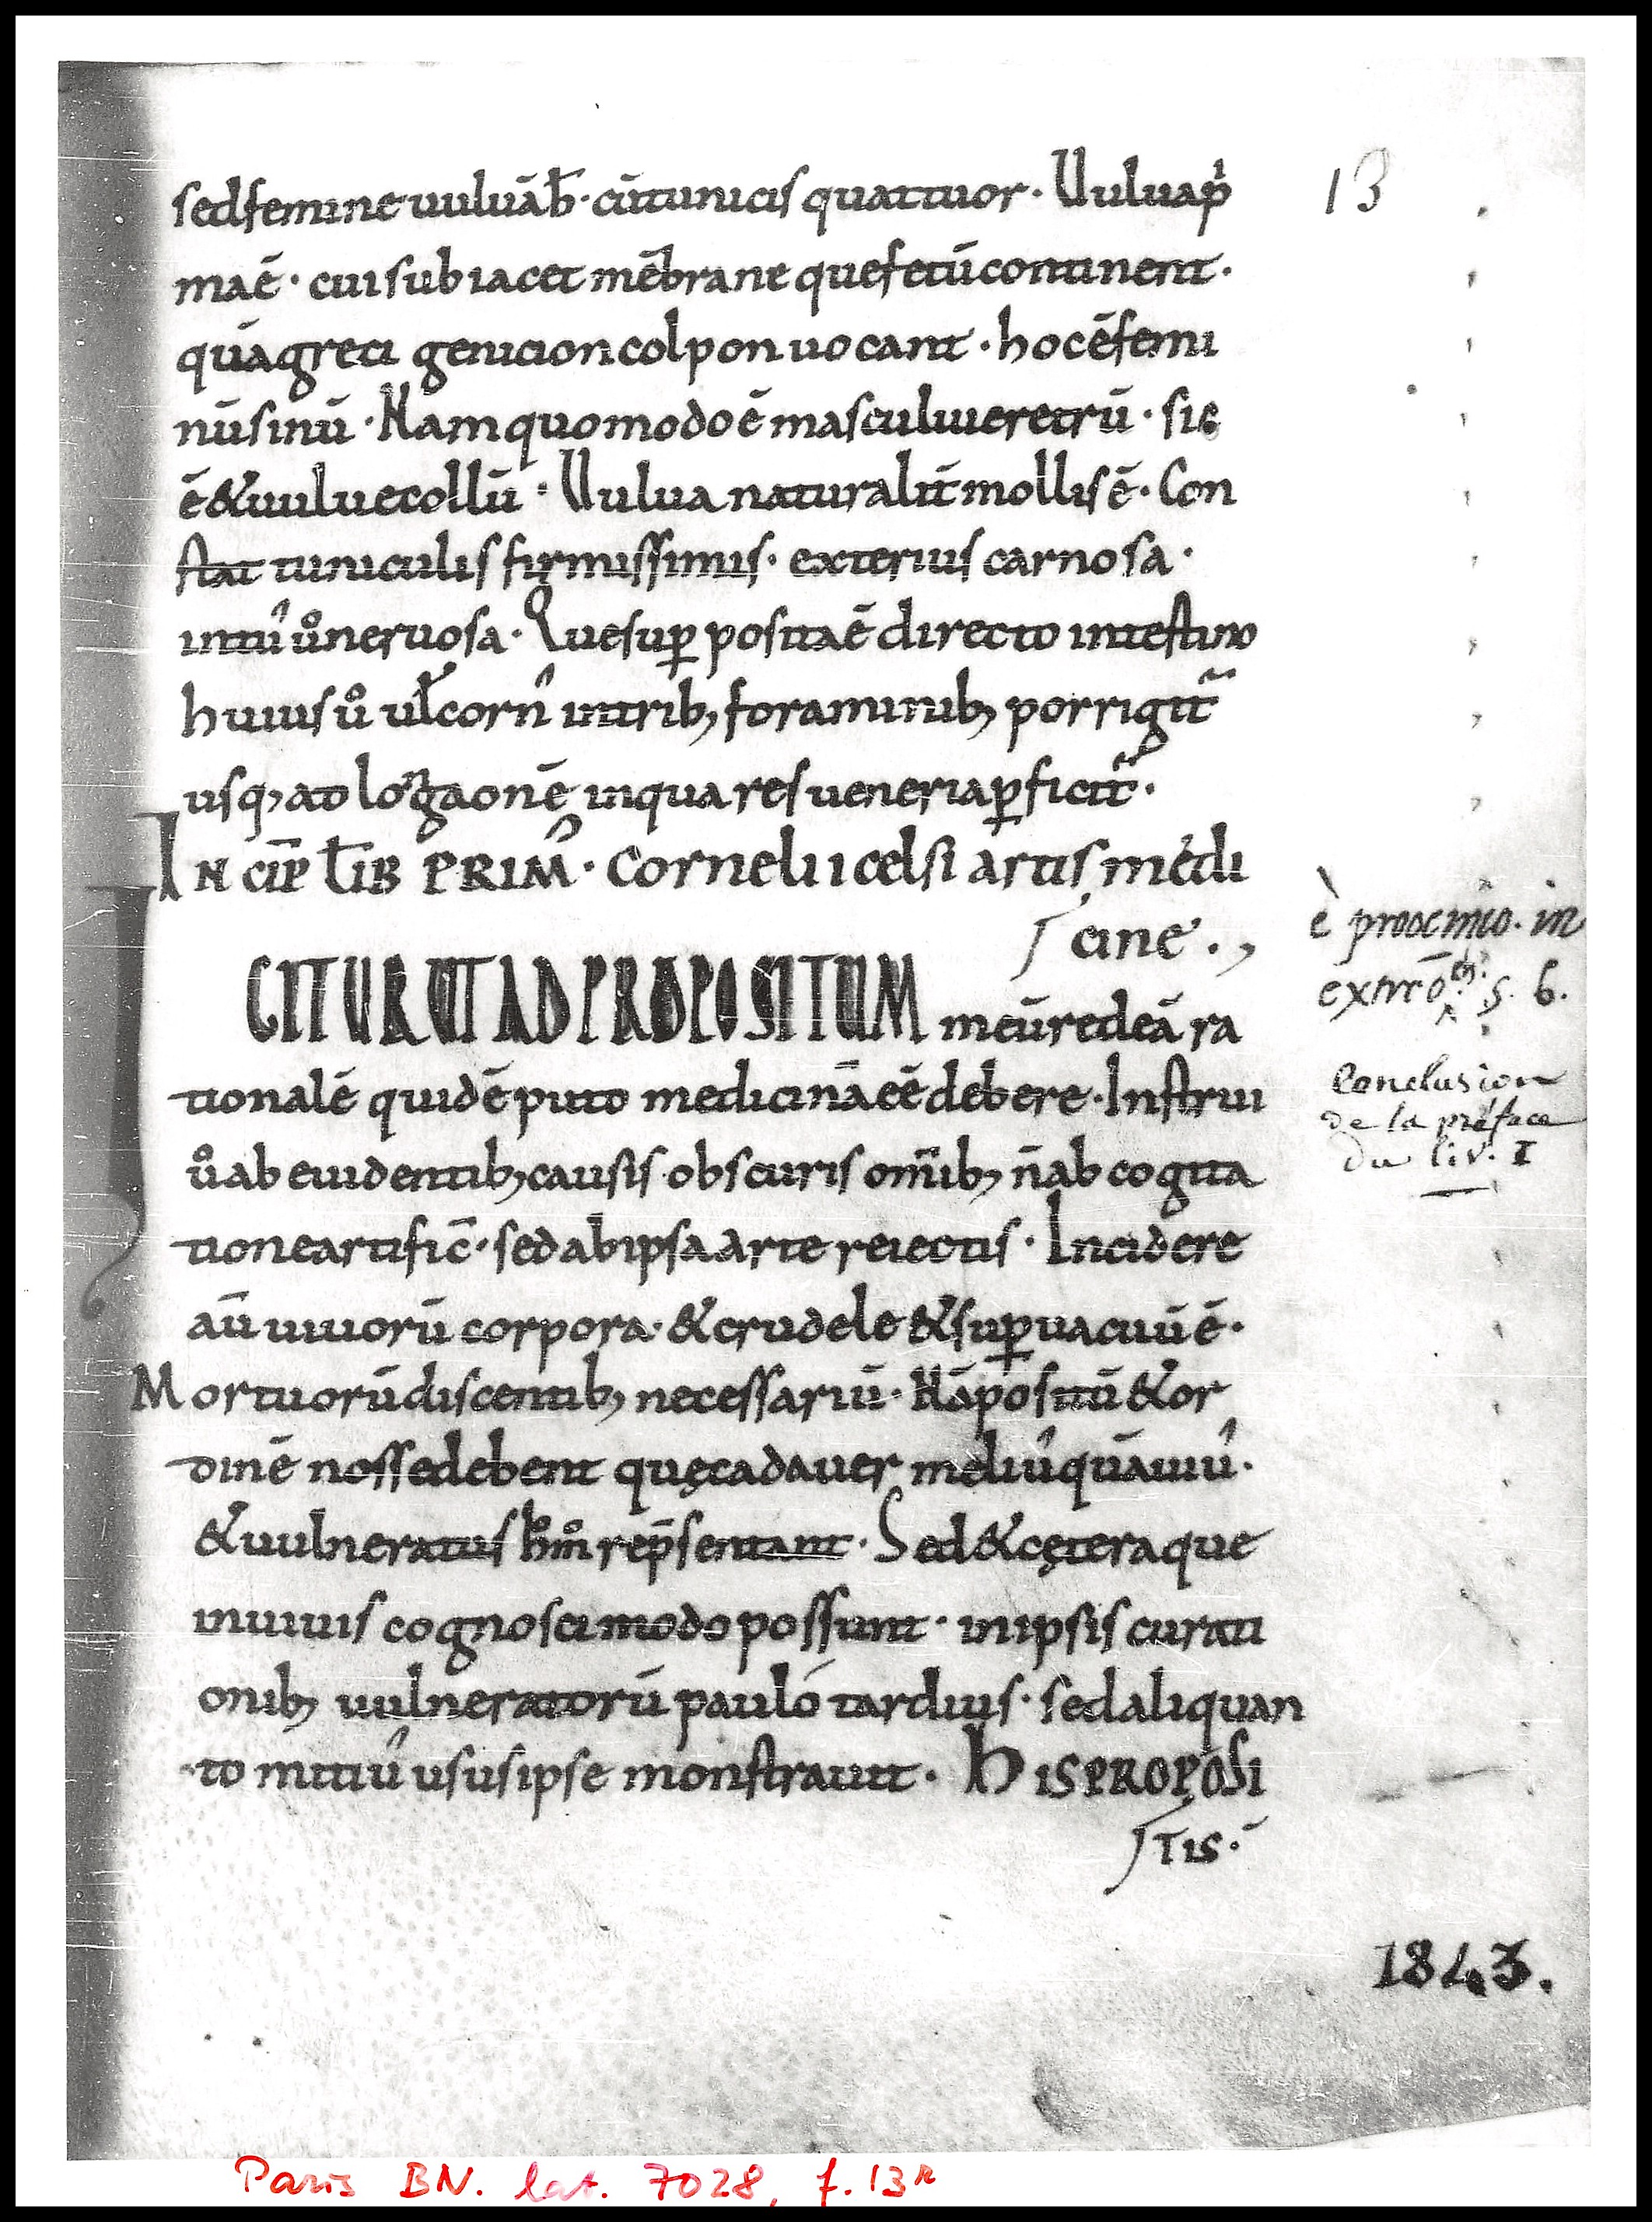 sed femine uuluā hb̄· cū tunicis quattuor· Uulua p'
ma ē· cui subiacet mēbrane que fetū continent·
quā greci genicion colpon uocant· hoc ē femi
nū sinū· Nam quomodo ē masculi ueretrū· sic
ē & uulue collū· Uulua naturalit̄ mollis ē· Con
stat tuniculis firmissimis· exterius carnosa·
intu' uº neruosa· Que sup̱ posita ē directo intestino
huius uº ul̄ cornu' in trib; foraminib; porrigit̄
usq; ad longaonē in qua res ueneria p̱ficit̄·
INCIP̄ LIB̄ PRIM'· Cornelii celsi artis medi
cine·,
IGITUR UT AD PROPOSITUM meū redeā ra
tionalē quidē puto medicinā eē debere· Instrui
uº ab euidentib; causis obscuris om̄ib; n̄ ab cogita
tione artific̄· sed ab ipsa arte reiectis· Incidere
aū uiuorū corpora· & crudele & sup̱uacuū ē·
Mortuorū discentib; necessariū· Nā positū & or
dinē nosse debent quę cadauer meliu' quā uiu'·
& uulneratus hºmº rep̄sentant· Sed & cętera que
in uiuis cognosci modo possunt· in ipsis curati
onib; uulneratorū pauló tardius· sed aliquan
to mitiu' usus ipse monstrauit· HIS PROPOSI
TIS·
13
è prooemio. in
extrō S. 6.
Conclusion
de la préface
du liv. I
1843.
Paris BN. lat. 7028, f. 13r